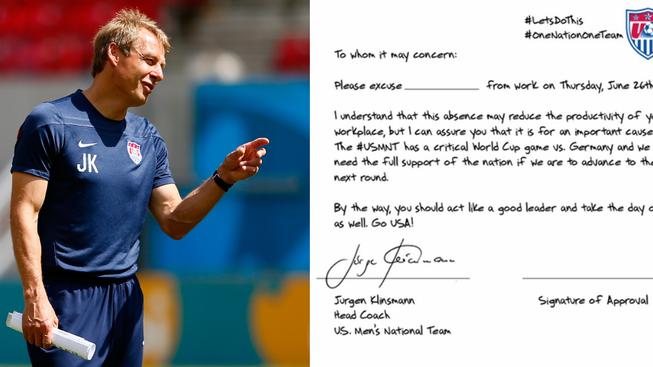 JK
#LetsDoThis
#OneNationOneTeam
US
To whom it may concern:
Please excuse from work on Thursday, June 26th
I understand that this absence may reduce the productivity of
workplace, but I can assure you that it is for an important cause
The #USMNT has a critical World Cup game vs. Germany and we
need the full support of the nation if we are to advance to the
next round.
By the way, you should act like a good leader and take the day
as well. Go USA!
Jürgen Klinsmann
Jurgen Klinsmann
Signature of Approval
Head Coach
US. Men's National Team